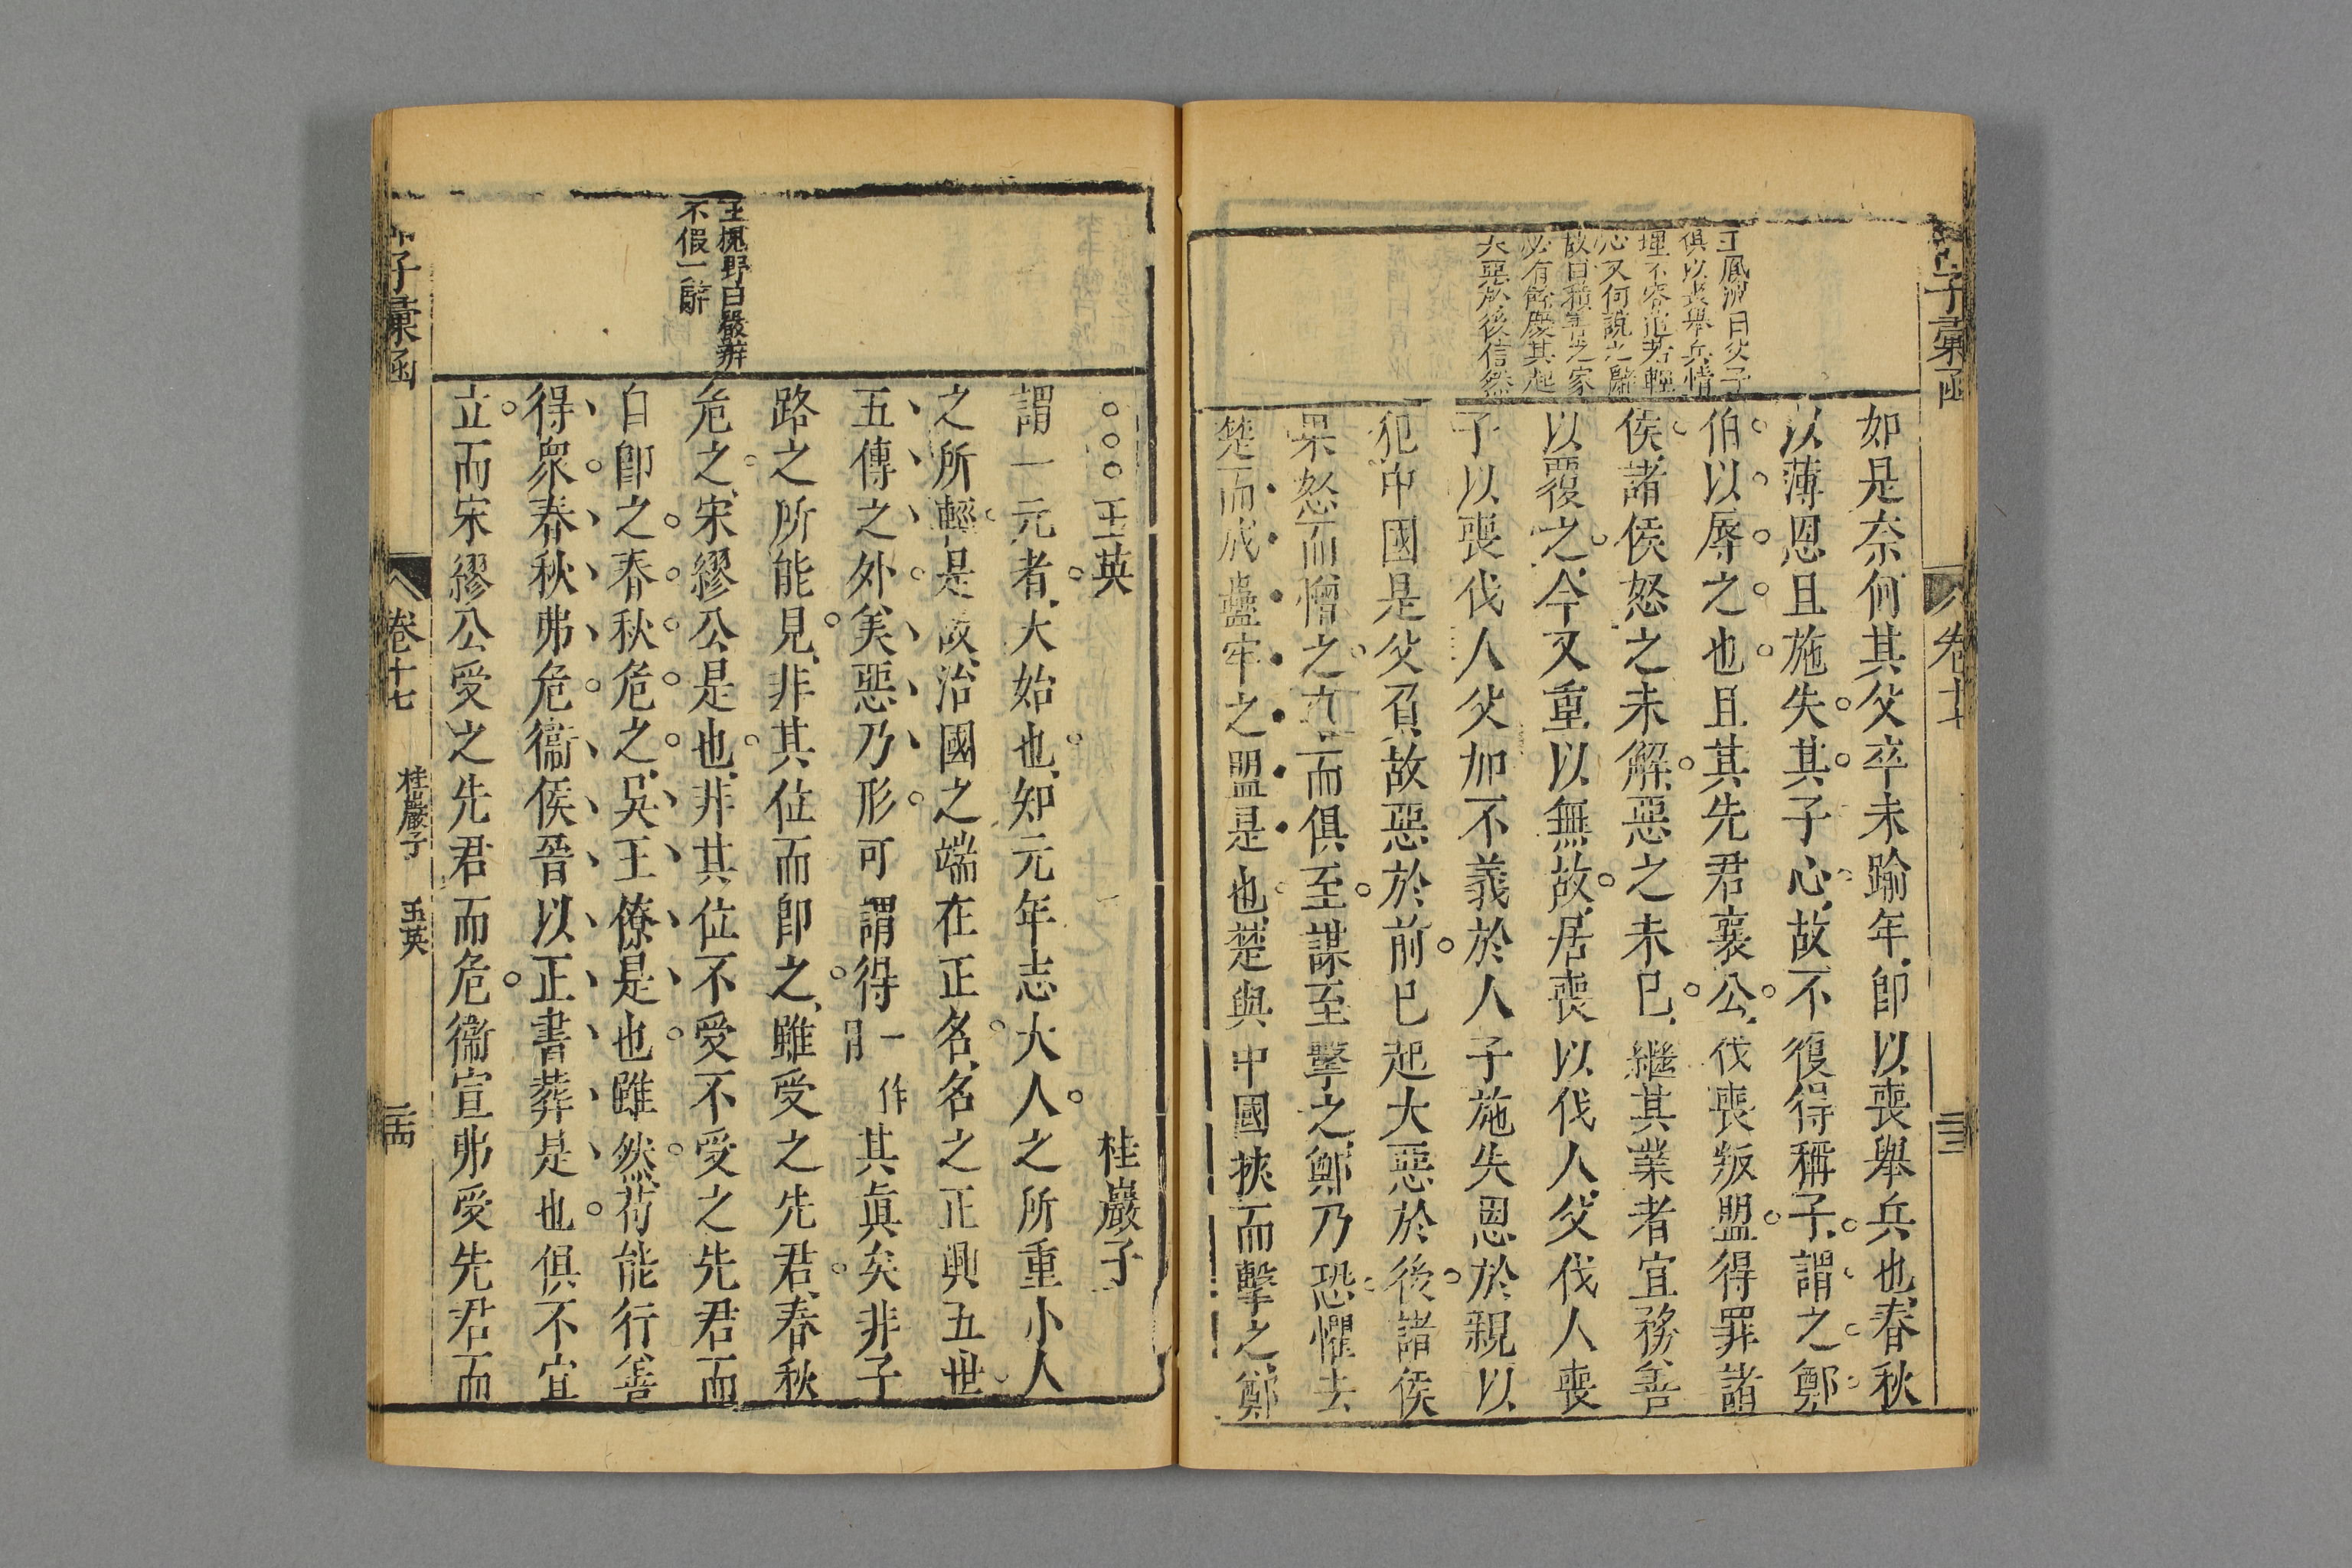 子彙函
卷十七
王鳳洲曰父子
俱以喪舉兵情
理不容道若輕
心又何說之辭
故曰積善之家
必有餘慶其起
大惡於後信然
如是奈何其父卒未踰年卽以喪舉兵也春秋
以薄恩且施失其子心故不復得稱子謂之鄭
伯以辱之也且其先君襄公伐喪叛盟得罪諸
侯諸侯怒之未解惡之未已繼其業者宜務善
以覆之今又重以無故居喪以伐人父伐人喪
子以喪伐人父加不義於人子施失恩於親以
犯中國是父負故惡於前已起大惡於後諸侯
果怒而憎之而俱至謀至擊之鄭乃恐懼去
楚而成蠱牢之盟是也楚與中國挾而擊之鄭
王槐野曰嚴辨
不假一辭
王英
桂巖子
謂一元者大始也知元年志大人之所重小人
之所輕是故治國之端在正名名之正興五世
五傳之外美惡乃形可謂得一作其眞矣非子
路之所能見非其位而卽之雖受之先君春秋
危之宋繆公是也非其位不受不受之先君而
自卽之春秋危之吳王僚是也雖然苟能行善
得衆春秋弗危衞侯晉以正書葬是也俱不宜
立而宋繆公受之先君而危衞宣弗受先君而
子彙函
卷十七
桂巖子
玉英